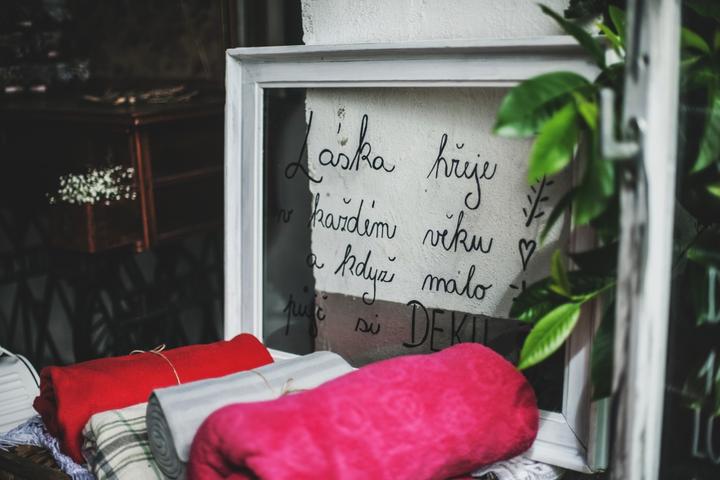 Láska hřeje
v každém věku
a když málo
půjč si DEKU